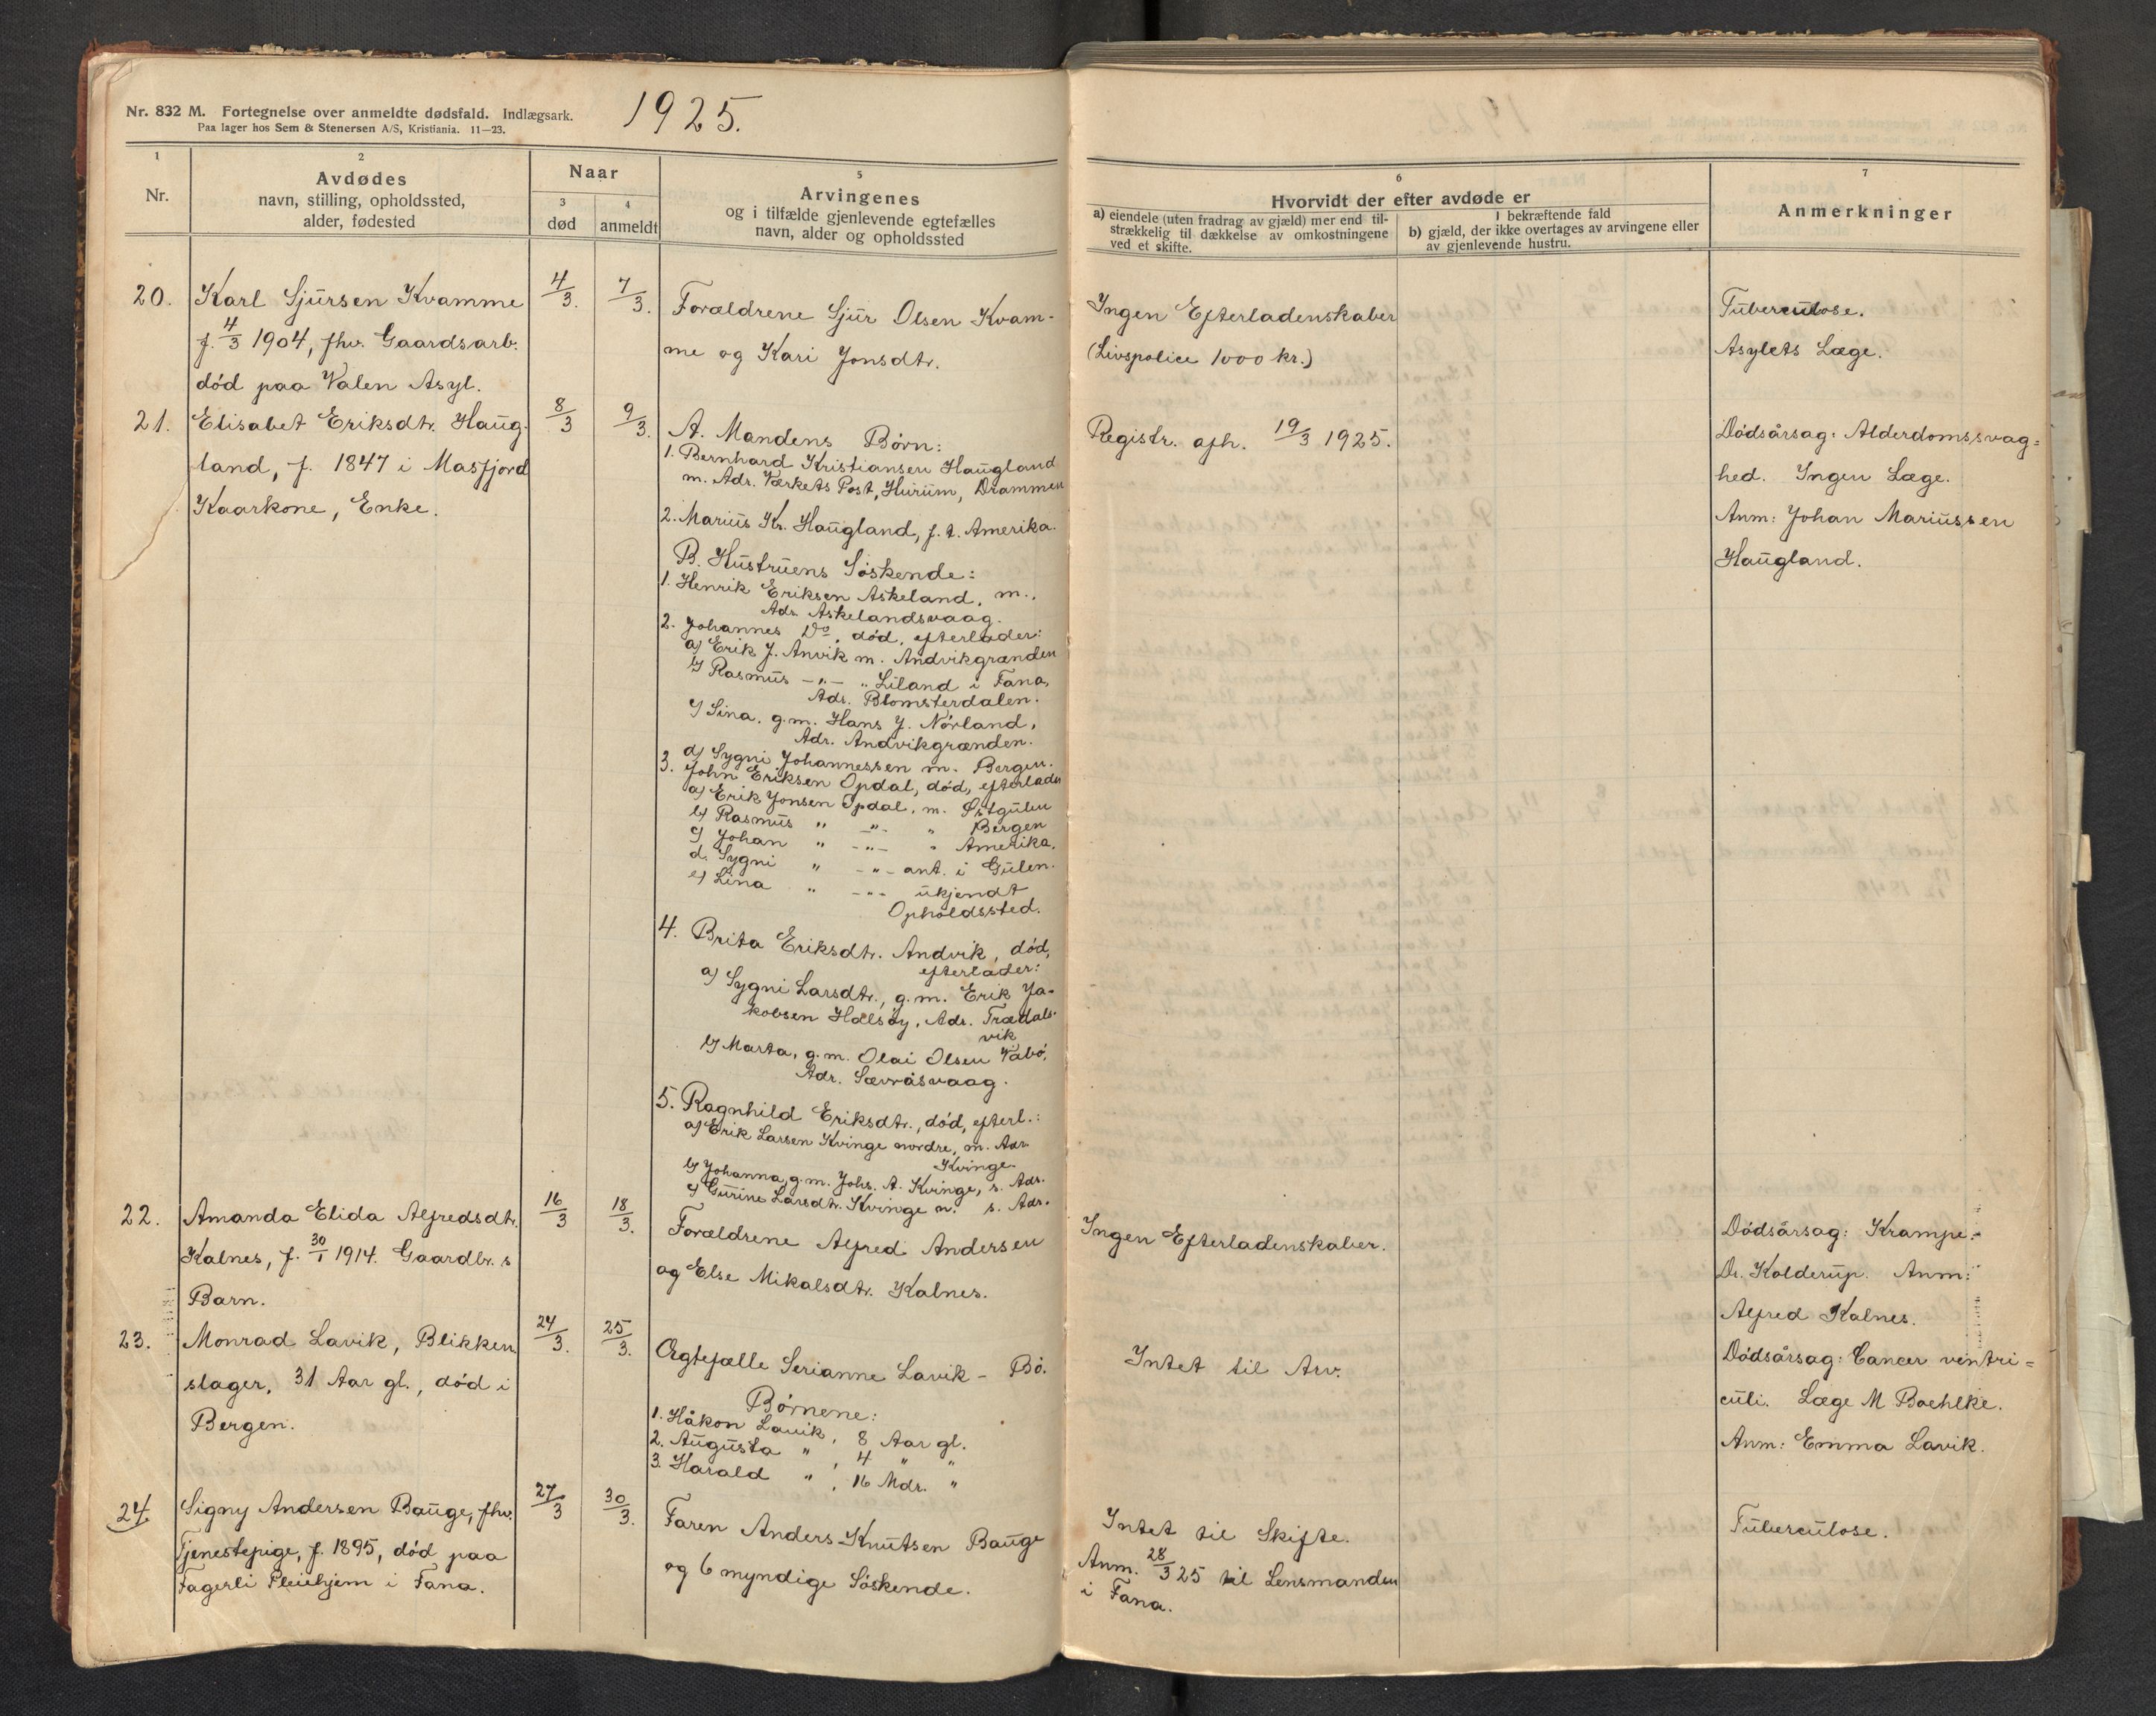 Nr. 832 M. Fortegnelse over anmeldte dødsfald. Indlægsark.
Paa lager hos Sem & Stenersen A/S, Kristiania. 11—23.
1925.
1
Nr.
2
Avdødes
navn, stilling, opholdssted,
alder, fødested
Naar
3
død
4
anmeldt
5
Arvingenes
og i tilfælde gjenlevende egtefælles
navn, alder og opholdssted
6
Hvorvidt der efter avdøde er
a) eiendele (uten fradrag av gjæld) mer end til-
strækkelig til dækkelse av omkostningene
ved et skifte.
I bekræftende fald
b) gjæld, der ikke overtages av arvingene eller
av gjenlevende hustru.
7
Anmerkninger
20.
Karl Sjursen Kvamme
f. 4/3 1904, fhv. Gaardsarb.
død paa Valen Asyl.
4/3.
7/3.
Forældrene Sjur Olsen Kvam-
me og Kari Jonsdtr.
Ingen Efterladenskaber
(Livspolice 1000 kr.)
Tuberculose.
Asylets Læge.
21.
Elisabet Eriksdtr. Haug-
land, f. 1847 i Masfjord
Kaarkone, Enke.
8/3
9/3.
A. Mandens Børn:
1. Bernhard Kristiansen Haugland
m. Adr. Værkets Post, Hurum, Drammen
2. Marius Kr. Haugland, f. t. Amerika.
B. Hustruens Søskende:
1. Henrik Eriksen Askeland, m.,
Adr. Askelandsvaag.
2. Johannes Do, død, efterlader:
a) Erik J. Anvik m. Andvikgrænden
b) Rasmus —"— " Liland i Fana,
Adr. Blomsterdalen.
c) Sina, g.m. Hans J. Nørland,
Adr. Andvikgrænden.
d) Sygni Johannessen m. Bergen.
3. John Eriksen Opdal, død, efterlader
a) Erik Jonsen Opdal, m. Østgulen
b) Rasmus " —"— " Bergen
c) Johan " —"— " Amerika.
d. Sygni " —"— ant. i Gulen.
e) Lina " —"— ukjendt
Opholdssted.
4. Brita Eriksdtr. Andvik, død,
efterlader:
a) Sygni Larsdtr., g.m. Erik Ja-
kobsen Halsøy, Adr. Trædals-
vik
b) Marta, g.m. Olai Olsen Vabø,
Adr. Sævråsvaag.
5. Ragnhild Eriksdtr., død, efterl.:
a) Erik Larsen Kvinge nordre, m. Adr.
Kvinge.
b) Johanna, g.m. Johs. A. Kvinge, s. Adr.
c) Gurine Larsdtr. Kvinge n. s. Adr.
Registr. afh. 19/3 1925.
Dødsårsag: Alderdomssvag=
hed. Ingen Læge.
Anm: Johan Mariussen
Haugland.
22.
Amanda Elida Alfredsdtr.
Kalnes, f. 30/1 1914. Gaardbr. s
Barn.
16/3
18/3.
Forældrene Alfred Andersen
og Else Mikalsdtr. Kalnes.
Ingen Efterladenskaber.
Dødsårsag: Krampe.
Dr. Kolderup. Anm:
Alfred Kalnes.
23.
Monrad Lavik, Blikken
slager, 31 Aar gl., død i
Bergen.
24/3.
25/3.
Ægtefælle Serianne Lavik – Bø.
Børnene:
1. Håkon Lavik, 8 Aar gl.
2. Augusta " , 4 " "
3. Harald " , 16 Mdr. "
Intet til Arv.
Dødsårsag: Cancer ventri=
culi. Læge M Boehlke.
Anm: Emma Lavik.
24.
Signy Andersen Bauge, fhv.
Tjenestepige, f. 1895, død paa
Fagerli Pleiehjem i Fana.
27/3
30/3.
Faren Anders Knutsen Bauge
og 6 myndige Søskende.
Intet til Skifte.
Anm. 28/3 25 til Lensmanden
i Fana.
Tuberculose.